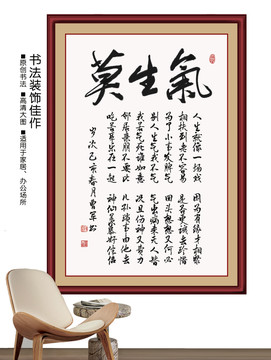 莫生氣
人生就像一场戏 因为有缘才相聚
相扶到老不容易 是否更该去珍惜
为了小事发脾气 回头想想又何必
别人生气我不气 气出病来无人替
我若气死谁如意 况且伤神又费力
邻居亲朋不要比 儿孙琐事由他去
吃苦享乐在一起 神仙羡慕好伴侣
岁次己亥春月曹军书
书法装饰佳作
■原创书法 ■高清大图 ■适用于家居、办公场所